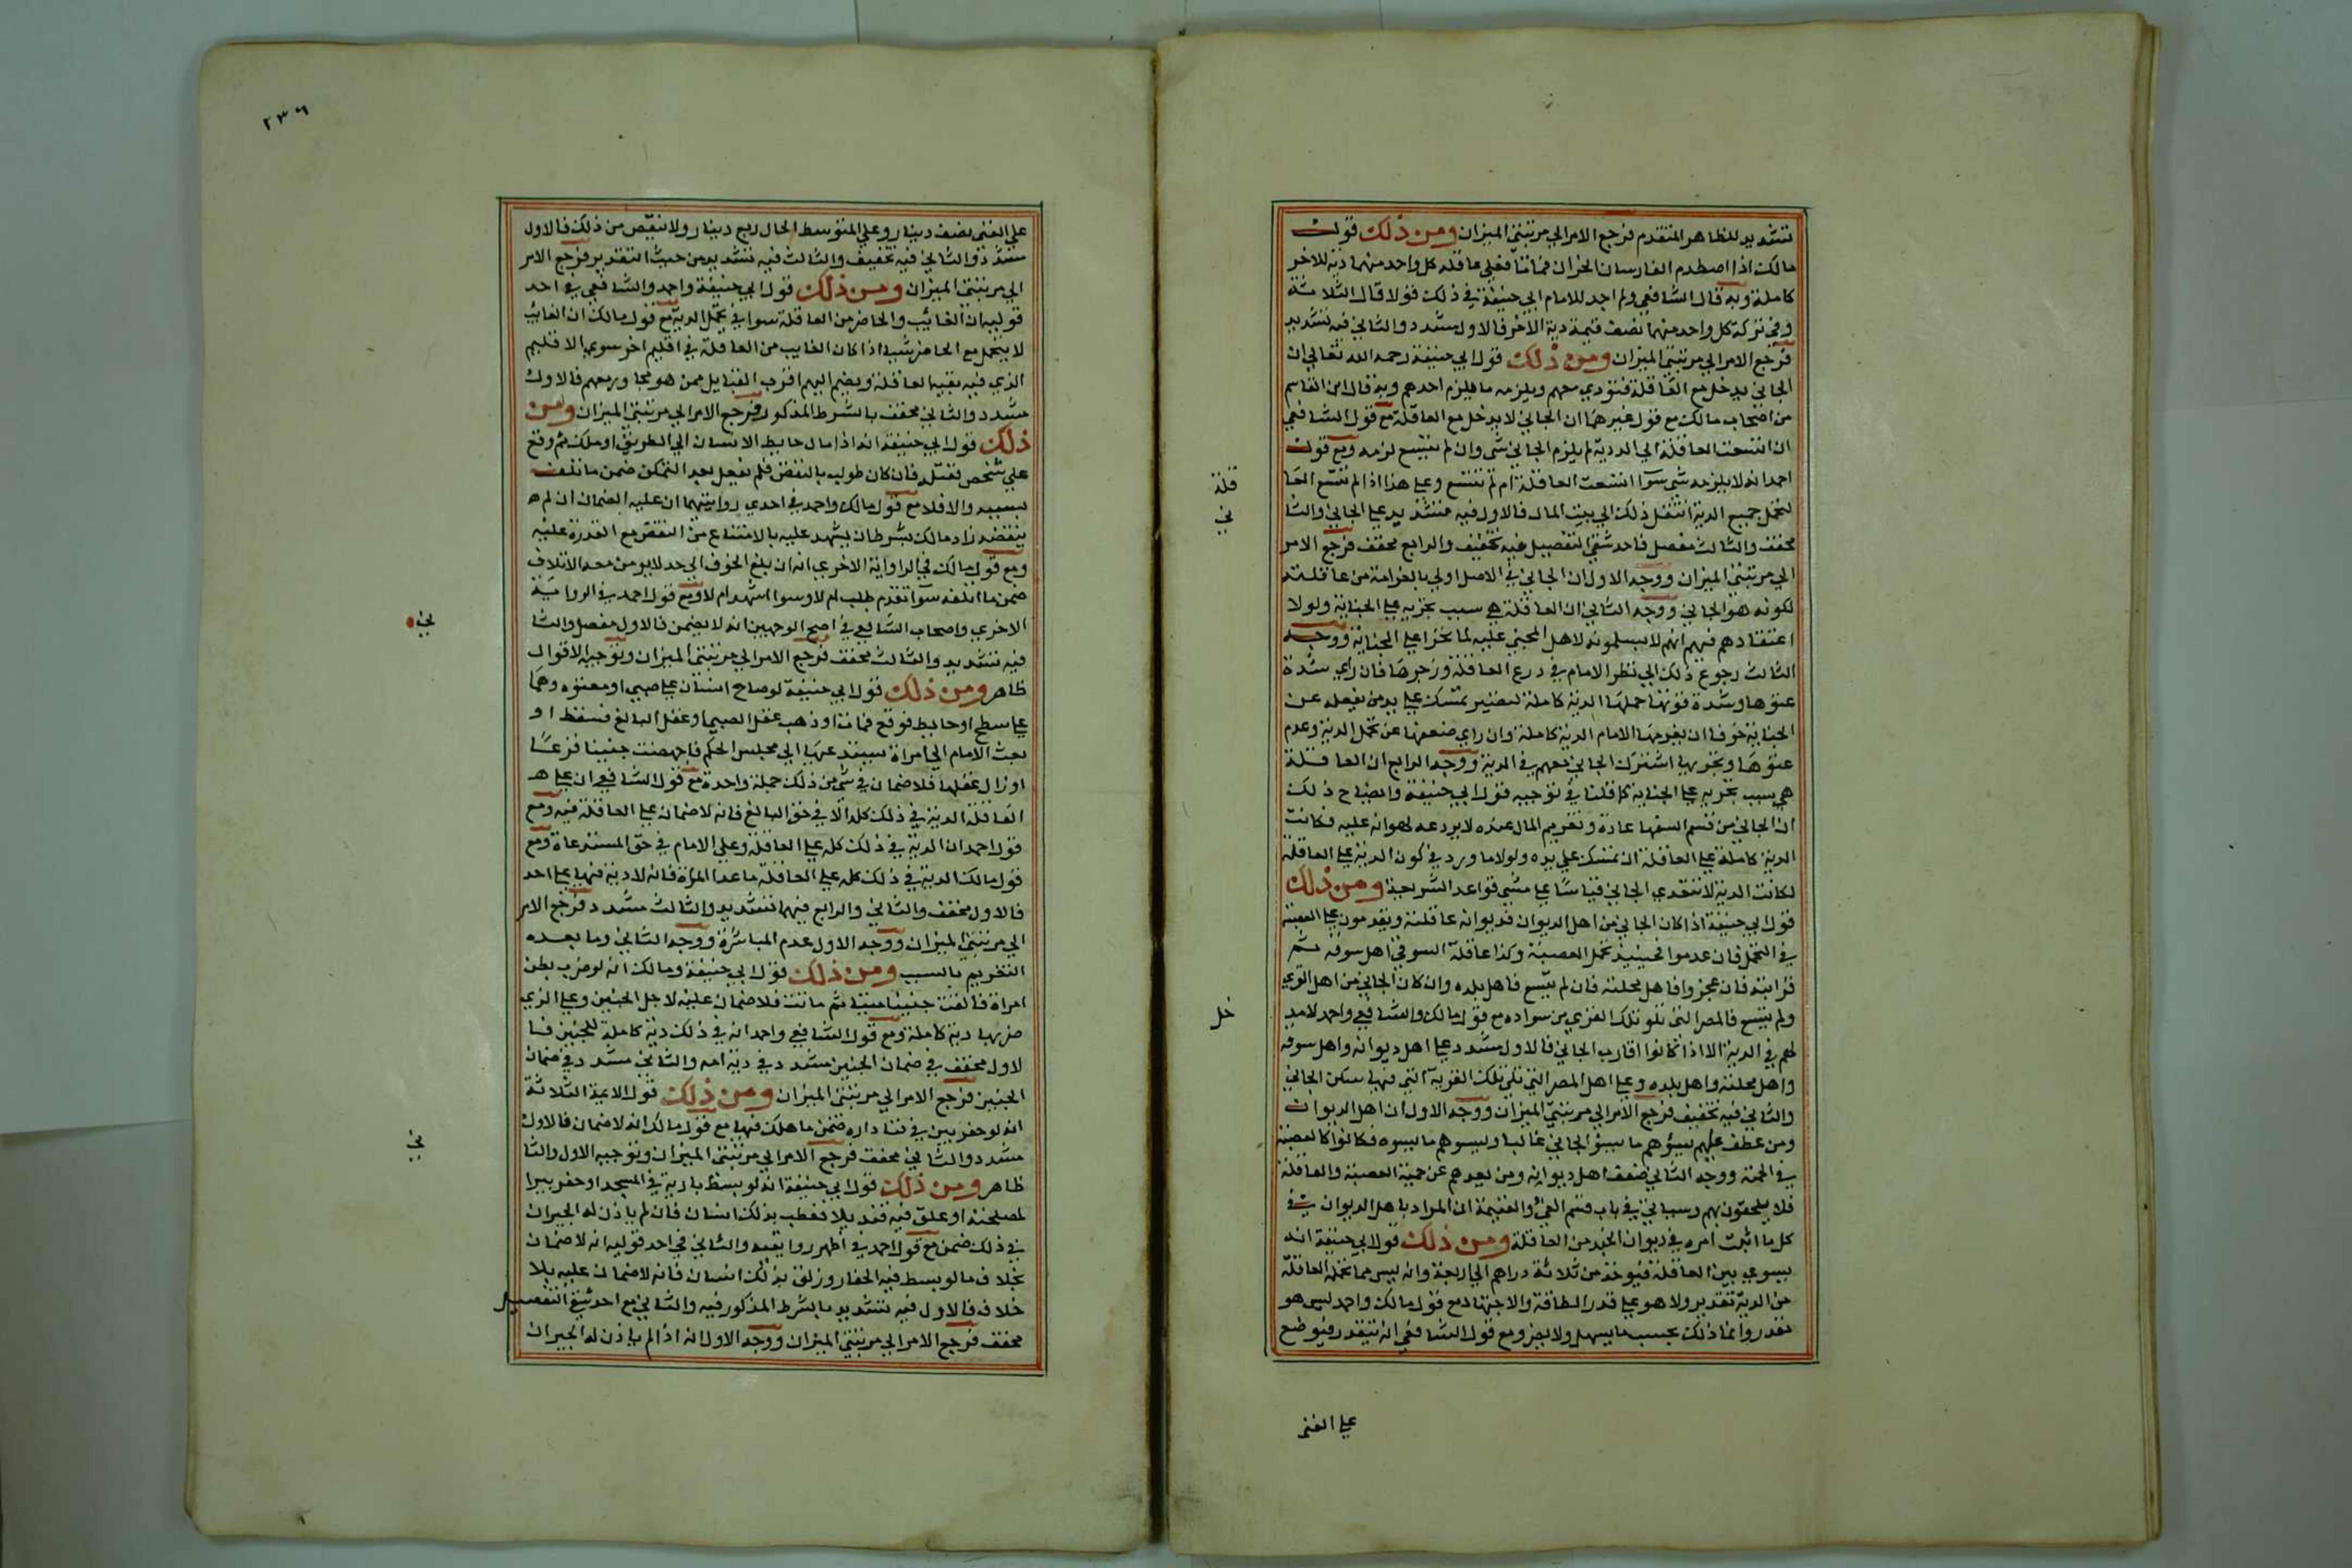 تشديد للظاهر المتقدم فرجع الامر الي مرتبتي الميزان ومن ذلك قول
مالك اذا اصطدم الفارسان الحران فماتا فعلي عاقلة كل واحد منهما دية للاخر
كاملة وبه قال الشافعي ولم اجد للامام ابي حنيفة في ذلك قولا قال الثلاثة
وفي تركة كل واحد منهما نصف قيمة دية الاخر فالاول مشدد والثاني فيه تشديد
فرجع الامر الي مرتبتي الميزان ومن ذلك قول ابي حنيفة رحمه الله تعالي ان
الجاني يدخل مع العاقلة فتودي معهم ويلزمه ما يلزم احدهم وبه قال ابن القاسم
من اصحاب مالك مع قول غيرهما ان الجاني لا يدخل مع العاقلة مع قول الشافعي
ان اتسعت العاقلة الي الدية لم يلزم الجاني شي وان لم تتسع لزمه ومع قول
احمد انه لا يلزمه شي سوآ اتسعت العاقلة ام لم تتسع وعلي هذا اذا لم تتسع العا
قلة
لتحمل جميع الدية انتقل ذلك الي بيت المال فالاول فيه تشديد علي الجاني والثا
ني
مخفف والثالث مفصل فاحد شقي التفصيل فيه تخفيف والرابع مخفف فرجع الامر
الي مرتبتي الميزان ووجه الاول ان الجاني في الاصل اولي بالغرامة من عاقلته
لكونه هو الجاني ووجه الثاني ان العاقلة هي سبب تجريه علي الجناية ولولا
اعتقادهم فيهم انهم لا يسلمونه لاهل المجني عليه لما تجرا علي الجناية ووجه
الثالث رجوع ذلك الي نظر الامام في درع العاقلة وزجرها فان راي شدة
عتوها وشدة قوتها حملها الدية كاملة لتصير تمسك علي يد من يفعله عن
الجناية خوفا ان يغرمها الامام الدية كاملة وان راي ضعفها عن تحمل الدية وعدم
عتوها وتجريها اشترك الجاني معهم في الدية ووجه الرابع ان العاقلة
هي سبب تجريه علي الجناية كما قلنا في توجيه قول ابي حنيفة وايضاح ذلك
ان الجاني من قسم السفها عادة وتغريم المال عنده لا يردعه لهوانه عليه فكانت
الدية كاملة علي العاقلة ان تمسك علي يده ولولا ما ورد في كون الدية علي العاقلة
لكانت الدية لا تتعدي الجاني قياسًا علي مشي قواعد الشريعة ومن ذلك
قول ابي حنيفة اذا كان الجاني من اهل الديوان فديوانه عاقلته ويقدمون علي العصبة
في التحمل فان عدموا فحينيذ تحمل العصبة وكذا عاقلة السوقي اهل سوقه ثم
قرابته فان عجزوا فاهل محلته فان لم تتسع فاهل بلده وان كان الجاني من اهل القري
ولم تتسع فالمصر التي تلو تلك القري من سواده مع قول مالك والشافعي واحمد لا مد
خل
لهم في الدية الا اذا كانوا اقارب الجاني فالاول مشدد علي اهل ديوانه واهل سوقه
واهل محلته واهل بلده وعلي اهل المصر التي تلي تلك القرية التي فيها سكن الجاني
والثاني فيه تخفيف فرجع الامر الي مرتبتي الميزان ووجه الاول ان اهل الديوان
ومن عطف عليهم يسؤهم ما يسؤ الجاني غالبا ويسوهم ما يسوه فكانوا كالعصبة
في الحمية ووجه الثاني ضعف اهل ديوانه ومن بعدهم عن حمية العصبة والعاقلة
فلا يلحقون بهم وسياتي في باب قسم الفئ والغنيمة ان المراد باهل الديوان في
كل ما اثبت امره في ديوان الجند من العاقلة ومن ذلك قول ابي حنيفة انه
يسوي بين العاقلة فيوخذ من ثلاثة دراهم الي اربعة وانه ليس مما تحمله العاقلة
من الدية تقدير ولا هو علي قدر الطاقة والاجتهاد مع قول مالك واحمد ليس هو
مقدر وانما ذلك بحسب ما يسهل ولا يضر ومع قول الشافعي انه يتقدر فيوضع
علي الغني
٢٣٦
علي الغني نصف دينار وعلي المتوسط الحال ربع دينار ولا ينقص من ذلك فالاول
مشدد والثاني فيه تخفيف والثالث فيه تشديد من حيث التقدير فرجع الامر
الي مرتبتي الميزان ومن ذلك قول ابي حنيفة واحمد والشافعي في احد
قوليه ان الغائب والحاضر من العاقلة سوا في تحمل الدية مع قول مالك ان الغائب
لا يتحمل مع الحاضر شيا اذا كان الغايب من العاقلة في اقليم اخر سوي الاقليم
الذي فيه بقية العاقلة ويضم اليهم اقرب القبايل ممن هو مجاور معهم فالاول
مشدد والثاني مخفف بالشرط المذكور فرجع الامر الي مرتبتي الميزان ومن
ذلك قول ابي حنيفة انه اذا مال حايط الانسان الي الطريق او ملك ثم وقع
علي شخص فقتله فان كان طولب بالنقض فلم يفعل بعد التمكن ضمن ما تلف
بسببه والا فلا مع قول مالك واحمد في احدي روايتيهما ان عليه الضمان ان لم ه
ينقضه زاد مالك بشرط ان يشهد عليه بالامتناع من النقض مع القدرة عليه
ومع قول مالك في الراواية الاخري انه ان بلغ الخوف الي حد لا يومن معه الاتلاف
ضمن ما اتلفه سوآ تقدم طلب ام لا وسوا اشهد ام لا ومع قول احمد في الرواية
الاخري واصحاب الشافعي في اصح الوجهين انه لا يضمن فالاول مفصل والثا
ني
فيه تشديد والثالث مخفف فرجع الامر الي مرتبتي الميزان وتوجيه الاقوال
ظاهر ومن ذلك قول ابي حنيفة لو صاح انسان علي صبي او معتوه وهما
علي سطح او حايط فوقع فماتا او ذهب عقل الصبي او عقل البالغ فسقط او
بعث الامام الي امراة يستدعيها الي مجلس الحكم فاجهضت جنينا فزعًا
او زال عقلها فلا ضمان في شي من ذلك جملة واحدة مع قول الشافعي ان علي ه
العاقلة الدية في ذلك كله الا في حق البالغ فانه لا ضمان علي العاقلة فيه ومع
قول احمد ان الدية في ذلك كله علي العاقلة وعلي الامام في حق المستدعاة ومع
قول مالك الدية في ذلك كله علي العاقلة ما عدا المراة فانه لا دية فيها علي احد
فالاول مخفف والثاني والرابع فيهما تشديد والثالث مشدد فرجع الامر
الي مرتبتي الميزان ووجه الاول عدم المباشرة ووجه الثاني وما بعده
التغريم بالسبب ومن ذلك قول ابي حنيفة ومالك انه لو ضرب بطن
امراة فالقت جنينا ميتا ثم ماتت فلا ضمان عليه لاجل الجنين وعلي الذي
ضربها دية كاملة ومع قول الشافعي واحمد انه في ذلك دية كاملة للجنين فا
لاول مخفف في ضمان الجنين مشدد في دية امه والثاني مشدد في ضمان
الجنين فرجع الامر الي مرتبتي الميزان ومن ذلك قول الايمة الثلاثة
انه لو حفر بير في فنا داره ضمن ما هلك فيها مع قول مالك انه لا ضمان فالاول
مشدد والثاني مخفف فرجع الامر الي مرتبتي الميزان وتوجيه الاول والثا
ني
ظاهر ومن ذلك قول ابي حنيفة انه لو بسط بارية في المسجد او حفر بيرا
لمصلحته او علق فيه قنديلا فعطب بذلك انسان فان لم ياذن له الجيران
في ذلك ضمن مع قول احمد في اظهر روايتيه والثاني في احد قوليه انه لا ضمان
بخلاف ما لو بسط فيه الحصا وزلق بذلك انسان فانه لا ضمان عليه بلا
خلاف فالاول فيه تشديد بالشرط المذكور فيه والثاني مع احد شقي التفصيل
مخفف فرجع الامر الي مرتبتي الميزان ووجه الاول انه اذا لم ياذن له الجيران